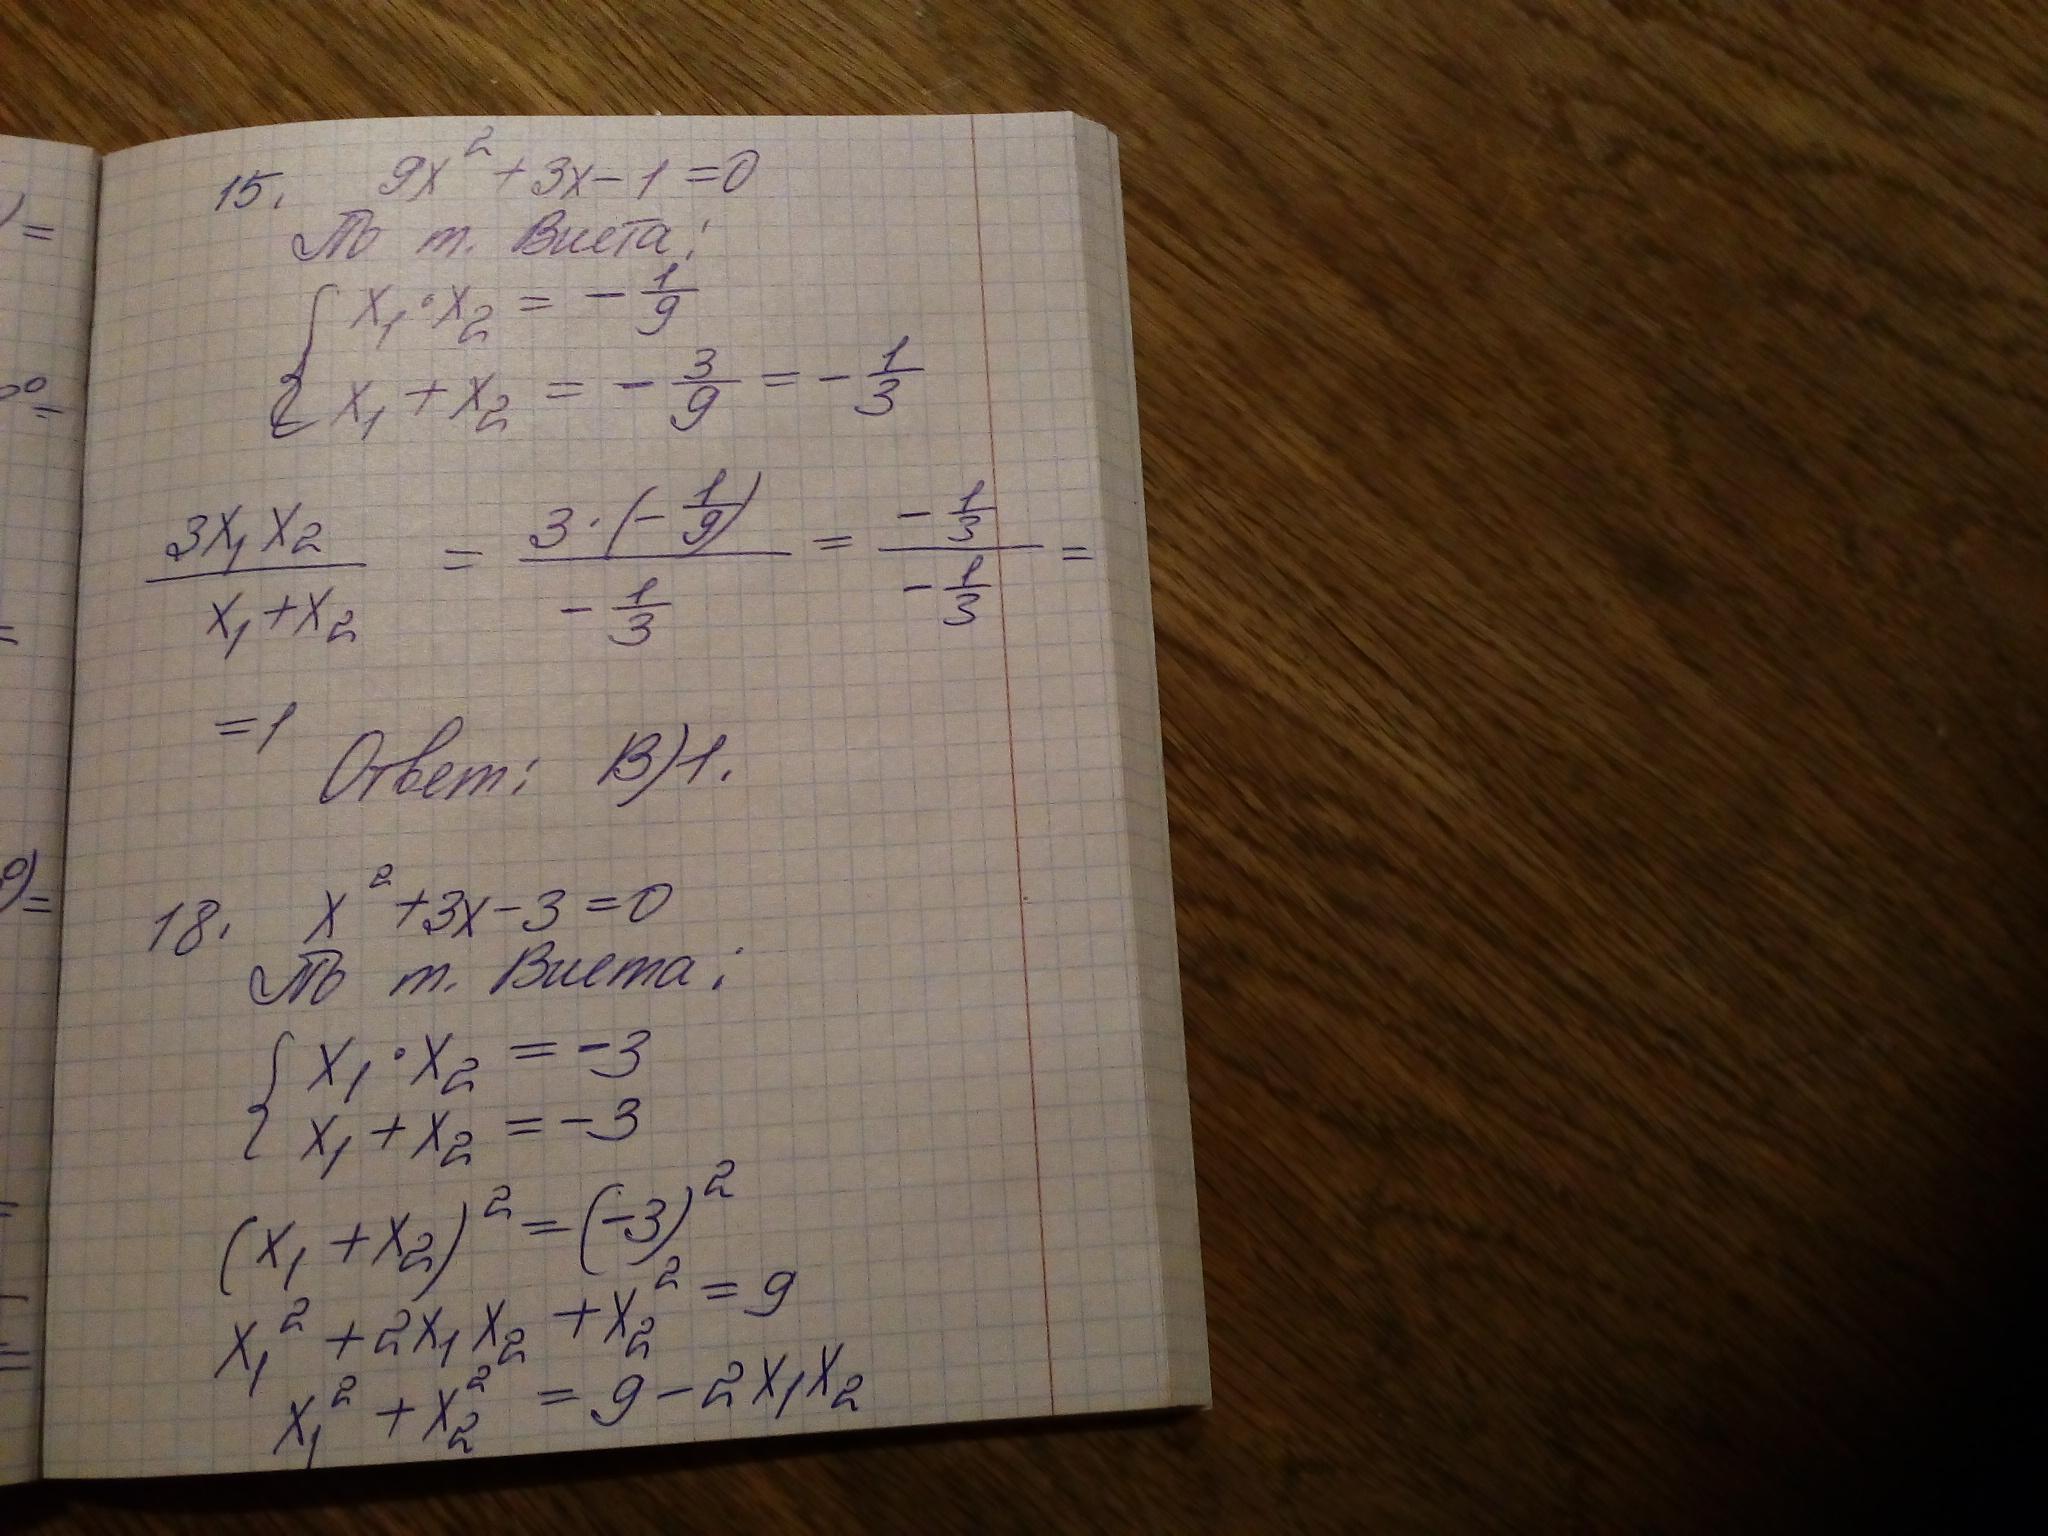 15. 9x² + 3x - 1 = 0
По т. Виета:
{ x₁ · x₂ = - 1/9
{ x₁ + x₂ = - 3/9 = - 1/3
3x₁x₂ / (x₁ + x₂) = 3 · (- 1/9) / (- 1/3) = (- 1/3) / (- 1/3) =
= 1 Ответ: В) 1.
18. x² + 3x - 3 = 0
По т. Виета:
{ x₁ · x₂ = -3
{ x₁ + x₂ = -3
(x₁ + x₂)² = (-3)²
x₁² + 2x₁x₂ + x₂² = 9
x₁² + x₂² = 9 - 2x₁x₂